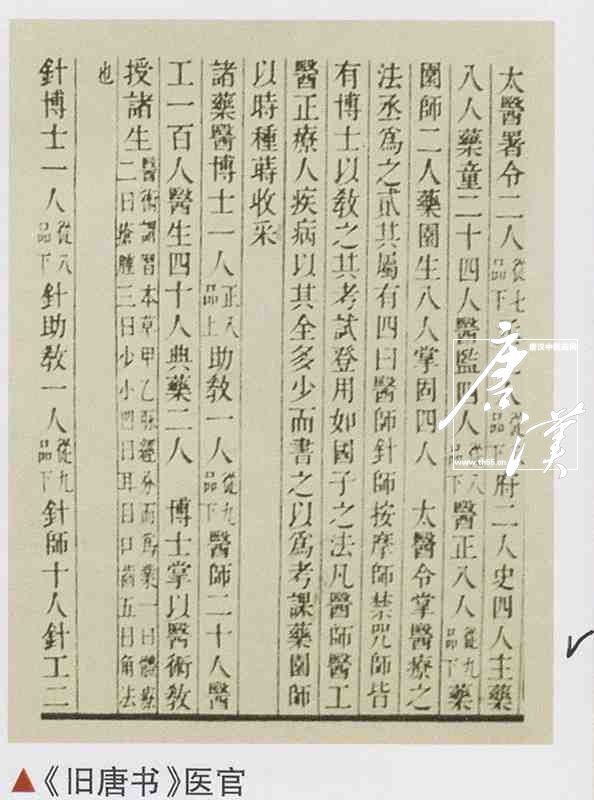 太醫署令二人從七品下人從八品下府二人史四人主藥
八人藥童二十四人醫監四人從八品下醫正八人從九品下藥
園師二人藥園生八人掌固四人 太醫令掌醫療之
法丞爲之貳其屬有四曰醫師針師按摩師禁咒師皆
有博士以敎之其考試登用如國子之法凡醫師醫工
醫正療人疾病以其全多少而書之以爲考課藥園師
以時種蒔收采
諸藥醫博士一人正八品上助敎一人從九品下醫師二十人醫
工一百人醫生四十人典藥二人 博士掌以醫術敎
授諸生醫術謂習本草甲乙脉經分而爲業一曰體療二曰瘡腫三曰少小四曰耳目口齒五曰角法
也
針博士一人從八品下針助敎一人從九品下針師十人針工二
唐汉
唐汉中医药网
www.th55.cn
▲《旧唐书》医官